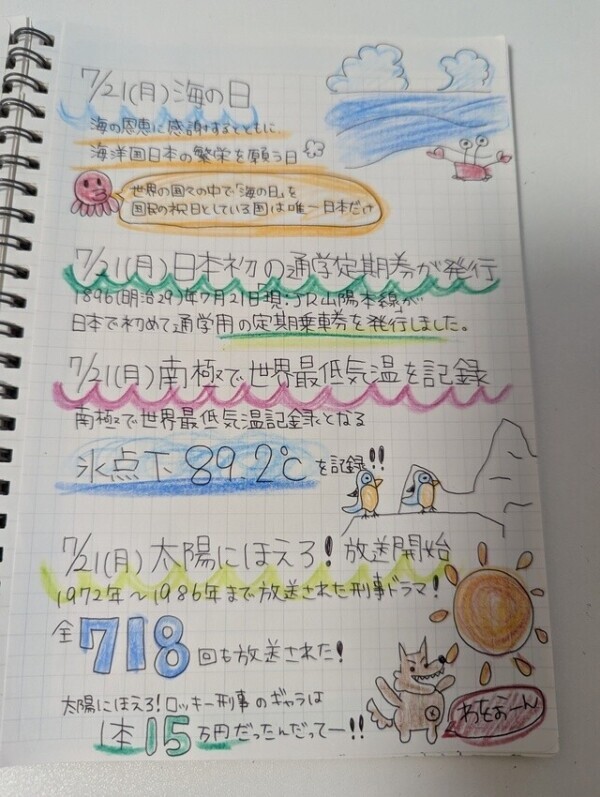 7/21(月)海の日
海の恩恵に感謝するとともに、
海洋国日本の繁栄を願う日
世界の国々の中で「海の日」を
国民の祝日としている国は唯一日本だけ
7/21(月)日本初の通学定期券が発行
1896(明治29)年7月21日現・JR山陽本線が
日本で初めて通学用の定期乗車券を発行しました。
7/21(月)南極で世界最低気温を記録
南極で世界最低気温記録となる
氷点下89.2℃を記録!!
7/21(月)太陽にほえろ!放送開始
1972年〜1986年まで放送された刑事ドラマ!
全718回も放送された!
太陽にほえろ!ロッキー刑事のギャラは
1本15万円だったんだってー!!
わをぉーん